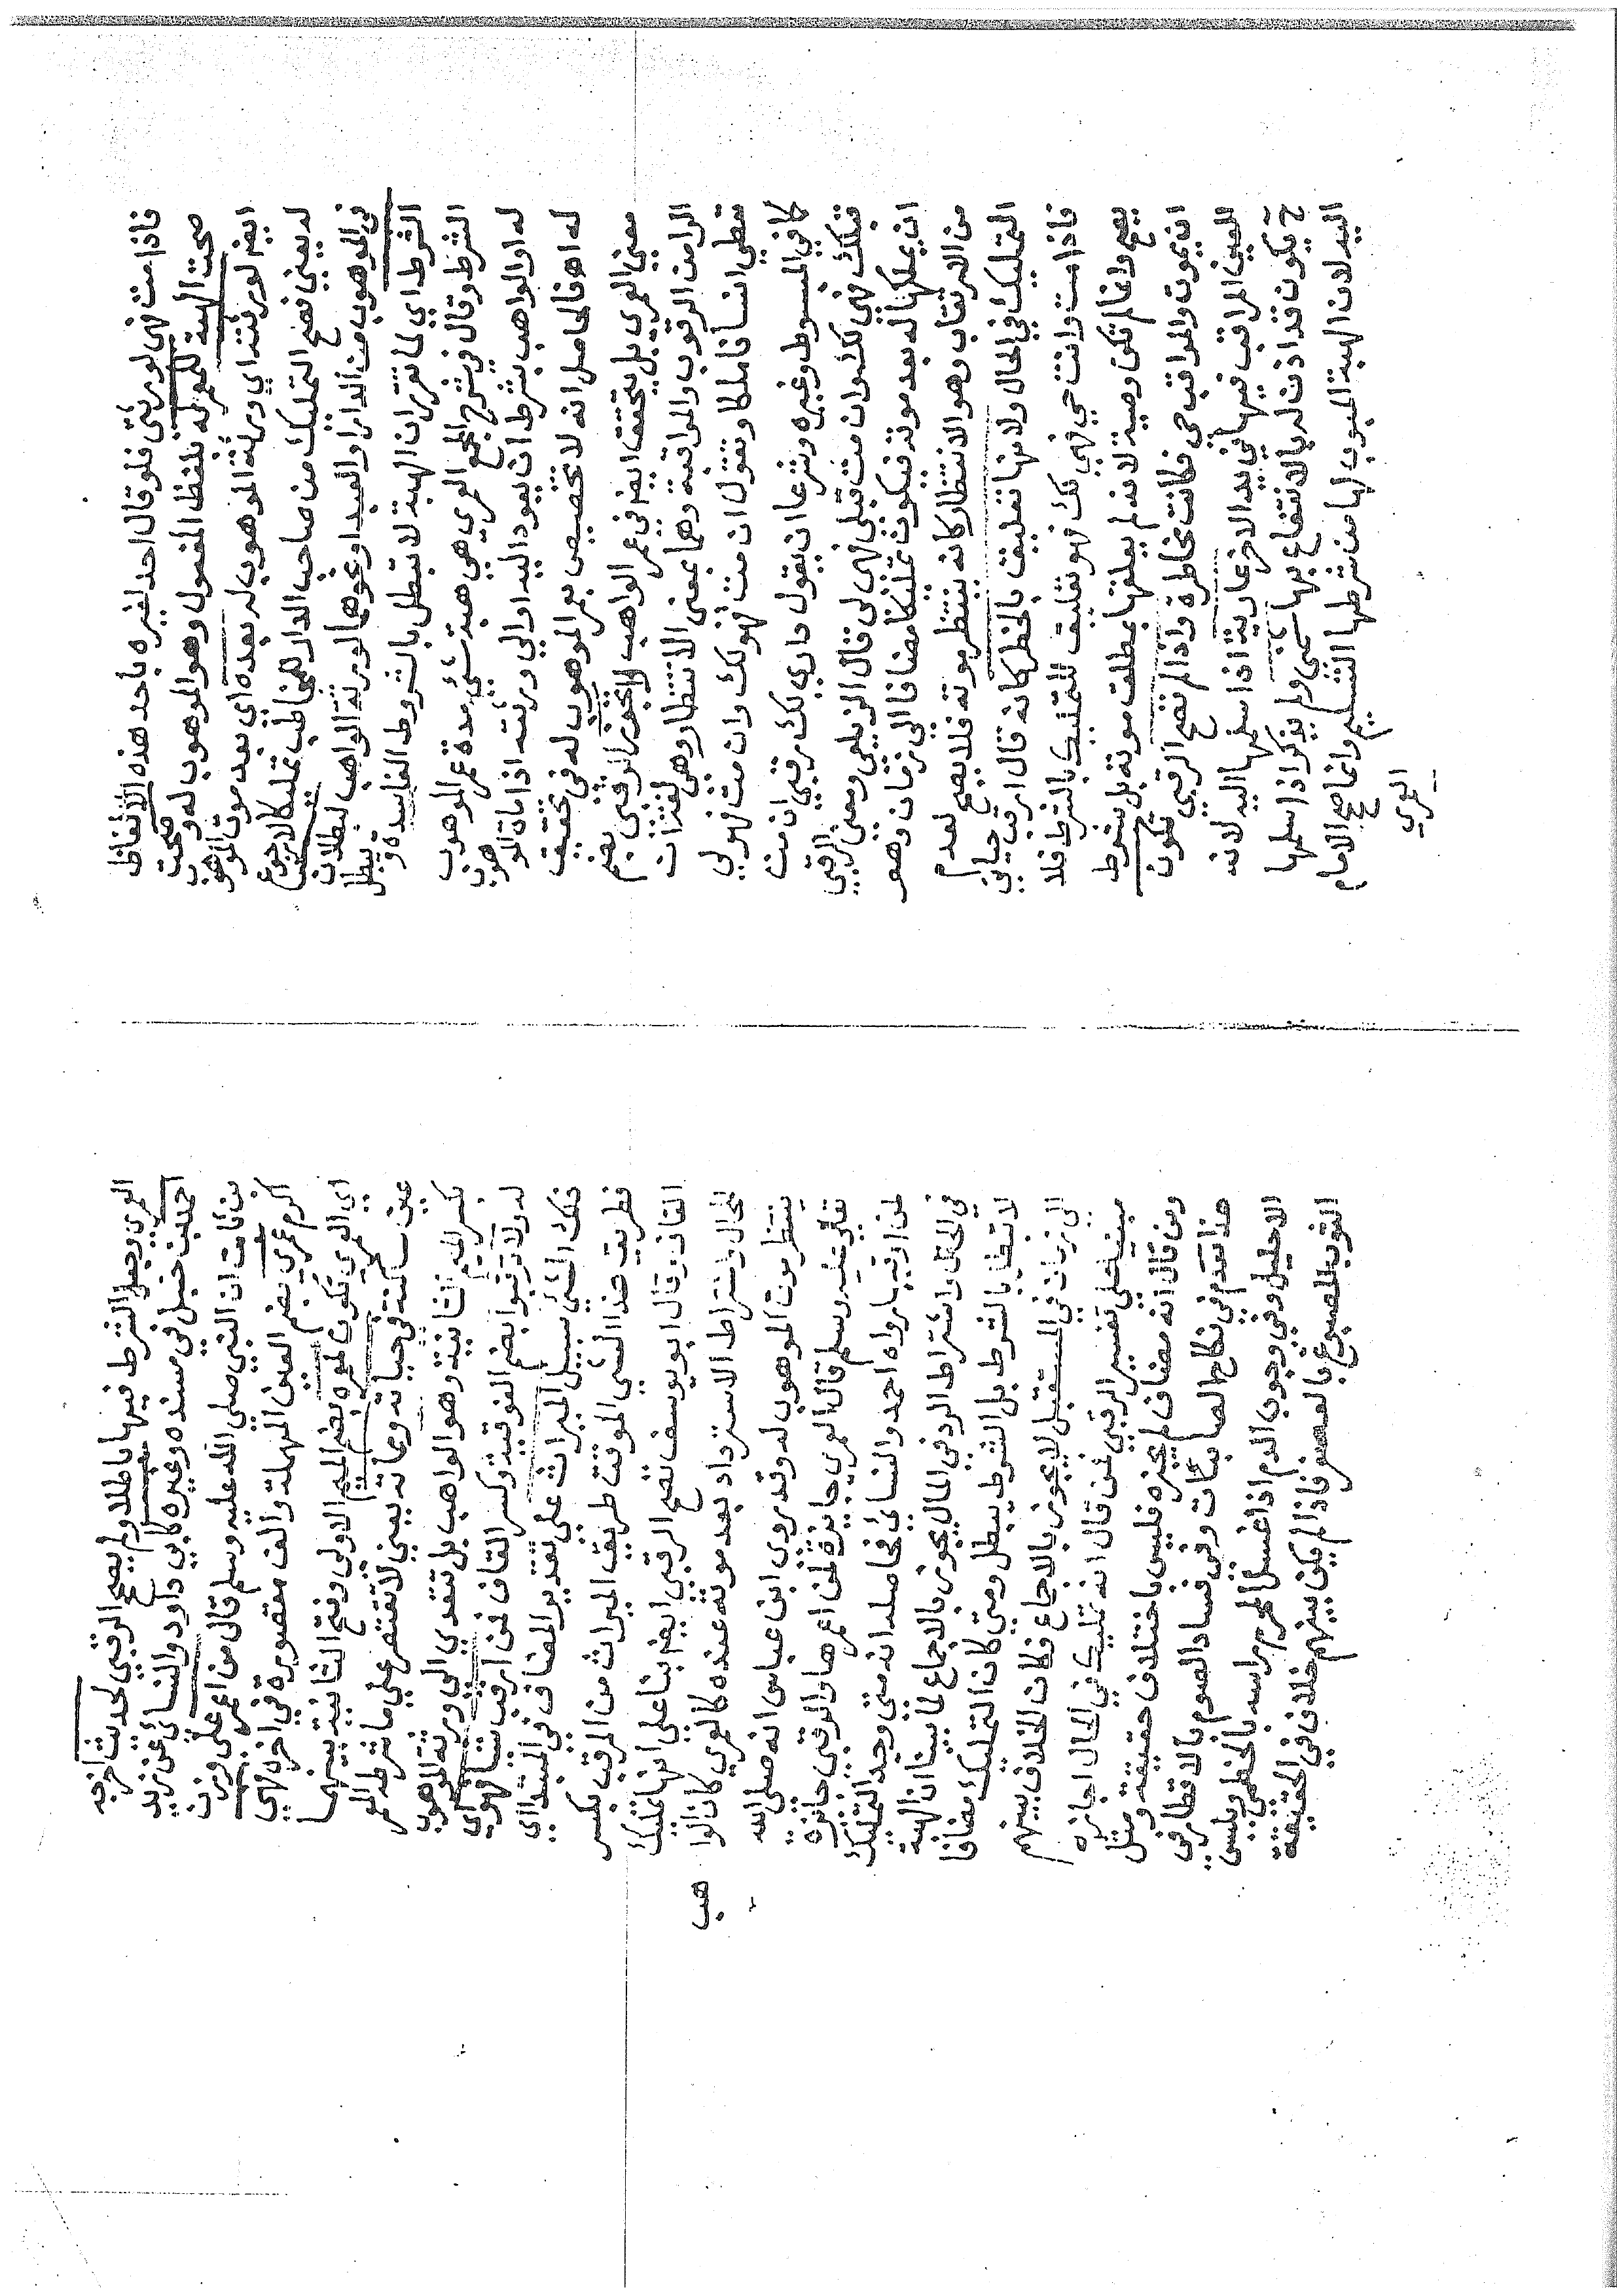 فاذا مت فهي لورثتي فلو قال احد لغيره باحد هذه الالفاظ
صحت الهبة للمعمر له بلفظ المفعول وهو الموهوب له وصحت
ايضم لورثته اي ورثة الموهوب له بعده اي بعد موت الموهوب
له يعني فصح التمليك من صاحب الدار للمخاطب تمليكا لا رجوع
في الموهوب من الدار او العبد او نحوها لورثة الواهب لبطلان
الشرط اي لما تقرر ان الهبة لا تبطل بالشروط الفاسدة ويبطل
الشرط وقال في شرح المجمع العمري هي هبة شئ مدة عمر الموهوب
له او الواهب بشرط ان يعود اليه او الي ورثته اذا مات الموهوب
له اه فالحاصل انه لا تخصيص بعمر الموهوب له في تحقيق
معني العمري بل يتحقق ايضم في عمر الواهب ولا تجوز الرقبي بضم
الرا من الرقوب والمراقبة وهما بمعني الانتظار وهي لغة ان
تعطي انسانا ملكا وتقول ان مت فهو لك وان مت فهو لي
كما في المبسوط وغيره وشرعا ان يقول داري لك رقبي ان مت
قبلك فهي لك وان مت قبلي فهي لي قال الزيلعي ومعني الرقبي
ان يملكها له بعد موته فيكون تمليكا مضافا الي زمان وهو
من الارتقاب وهو الانتظار كانه ينتظر موته فلا يصح لعدم
التمليك في الحال ولانها تعليق بالخطر كانه قال ارقب حياتي
فاذا مت وانت حي فهي لك فهو تعليق للتمليك بالشرط فلا
يصح وانما لم تكن وصية لانه لم يعلقها بمطلق موته بل بشرط
ان يموت والمراقب حي فكانت مخاطرة واذا لم تصح الرقبي تكون
العين المراقب فيها في يد الاخر عارية اذا سلمها اليه لانه
ح يكون قد اذن له بالانتفاع بها سمي ولم يذكر اذا سلمها
اليه لان الهبة المبوب لها من شرطها التسليم وانما صح الامام
العمري
العمري وجعل الشرط فيها باطلا ولم يصح الرقبي لحديث اخرجه
احمد بن حنبل في مسنده وغيره كابي داود والنسائي عن زيد
بن ثابت ان النبي صلي الله عليه وسلم قال من اعمر علي وزن
اكرم عمري بضم العين المهملة والف مقصورة في اخره فهي
اي العمري تكون لمعمره بضم الميم الاولي وفتح الثانية بينهما
عين ساكنة في حياته ومماته يعني لا تقتصر علي ما شرطه المعمر
بكسر الميم الثانية وهو الواهب بل تتعدي الي ورثة الموهوب
له ولا ترقبوا بضم الفوقية وكسر القاف فمن ارقب شيا فهو اي
فذلك الشئ سبيل الميراث علي تقدير المضاف في المبتدا اي
فطريق هذا الشي الموقت طريق الميراث من المرقب بكسر
القاف وقال ابو يوسف تصح الرقبي ايضم بنا علي انها تمليك
للحال واشتراط الاسترداد بعد موته عنده كالعمري كان الوا
هب
ينتظر موت الموهوب له وقد روي ابن عباس انه صلي الله
تعالي عليه وسلم قال العمري جايزة لمن اعمرها والرقبي جايزة
لمن ارقبها رواه احمد والنسائي فحاصله انه متي وجد التمليك
في الحال واشتراط الرد في المال يجوز بالاجماع لما بينا ان الهبة
لا تبطل بالشرط بل الشرط يبطل ومتي كان التمليك مضافا
الي زمان في المستقبل لا يجوز بالاجماع فكان الخلاف بينهم
مبنيا علي تفسير الرقبي فمن قال انه تمليك في الحال اجازه
ومن قال انه مضاف لم يجزه فليس باختلاف حقيقة ومثل
هذا تقدم في نكاح الصابئات وفي فساد الصوم بالاقطار في
الاحليل وفي وجوب الدم اذا غسل المحرم راسه بالخطمي ولبس
الثوب المصبوغ بالعصفر فاذا لم يكن بينهم خلاف في الحقيقة